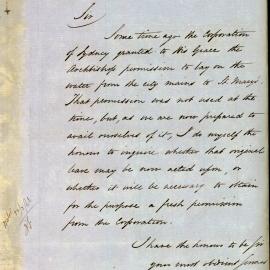 Sir
Some time ago the Corporation
of Sydney granted to His Grace the
Archbishop permission to lay on the
water from the city mains to St. Marys.
That permission was not used at the
time, but, as we are now prepared to
avail ourselves of it, I do myself the
honour to inquire whether that original
leave may be now acted upon, or
whether it will be necessary to obtain
for the purpose a fresh permission
from the Corporation.
I have the honour to be Sir
your most obedient servant